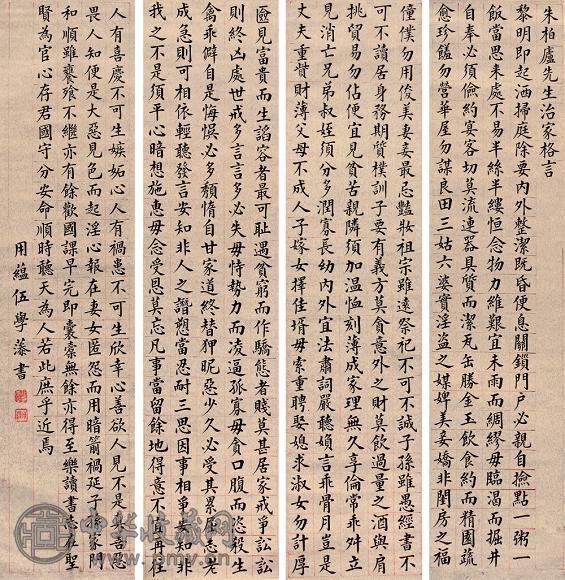 朱柏廬先生治家格言
黎明即起洒掃庭除要內外整潔既昏便息關鎖門戶必親自撿點一粥一
飯當思來處不易半絲半縷恒念物力維艱宜未雨而綢繆毋臨渴而掘井
自奉必須儉約宴客切莫流連器具質而潔瓦缶勝金玉飲食約而精園蔬
愈珍饈勿營華屋勿謀良田三姑六婆實淫盜之媒婢美妾嬌非閨房之福
僮僕勿用俊美妻妾最忌豔妝祖宗雖遠祭祀不可不誠子孫雖愚經書不
可不讀居身務期質樸訓子要有義方莫貪意外之財莫飲過量之酒與肩
挑貿易勿佔便宜見貧苦親隣須加溫恤刻薄成家理無久享倫常乖舛立
見消亡兄弟叔姪須分多潤寡長幼內外宜法肅詞嚴聽婦言乖骨月豈是
丈夫重貲財薄父母不成人子嫁女擇佳壻毋索重聘娶媳求淑女勿計厚
匳見富貴而生諂容者最可恥遇貧窮而作驕態者賤莫甚居家戒爭訟訟
則終凶處世戒多言言多必失毋恃勢力而凌逼孤寡毋貪口腹而恣殺生
禽乖僻自是悔悮必多頹惰自甘家道終替狎昵惡少久必受其累屈志老
成急則可相依輕聽發言安知非人之譖愬當忍耐三思因事相爭安知非
我之不是須平心暗想施惠毋念受恩莫忘凡事當留餘地得意不宜再往
人有喜慶不可生嫉妬心人有禍患不可生欣幸心善欲人見不是真善惡
畏人知便是大惡見色而起淫心報在妻女匿怨而用暗箭禍延子孫家門
和順雖饔飧不繼亦有餘歡國課早完即囊橐無餘亦得至樂讀書志在聖
賢為官心存君國守分安命順時聽天為人若此庶乎近焉
用蘊伍學藻書